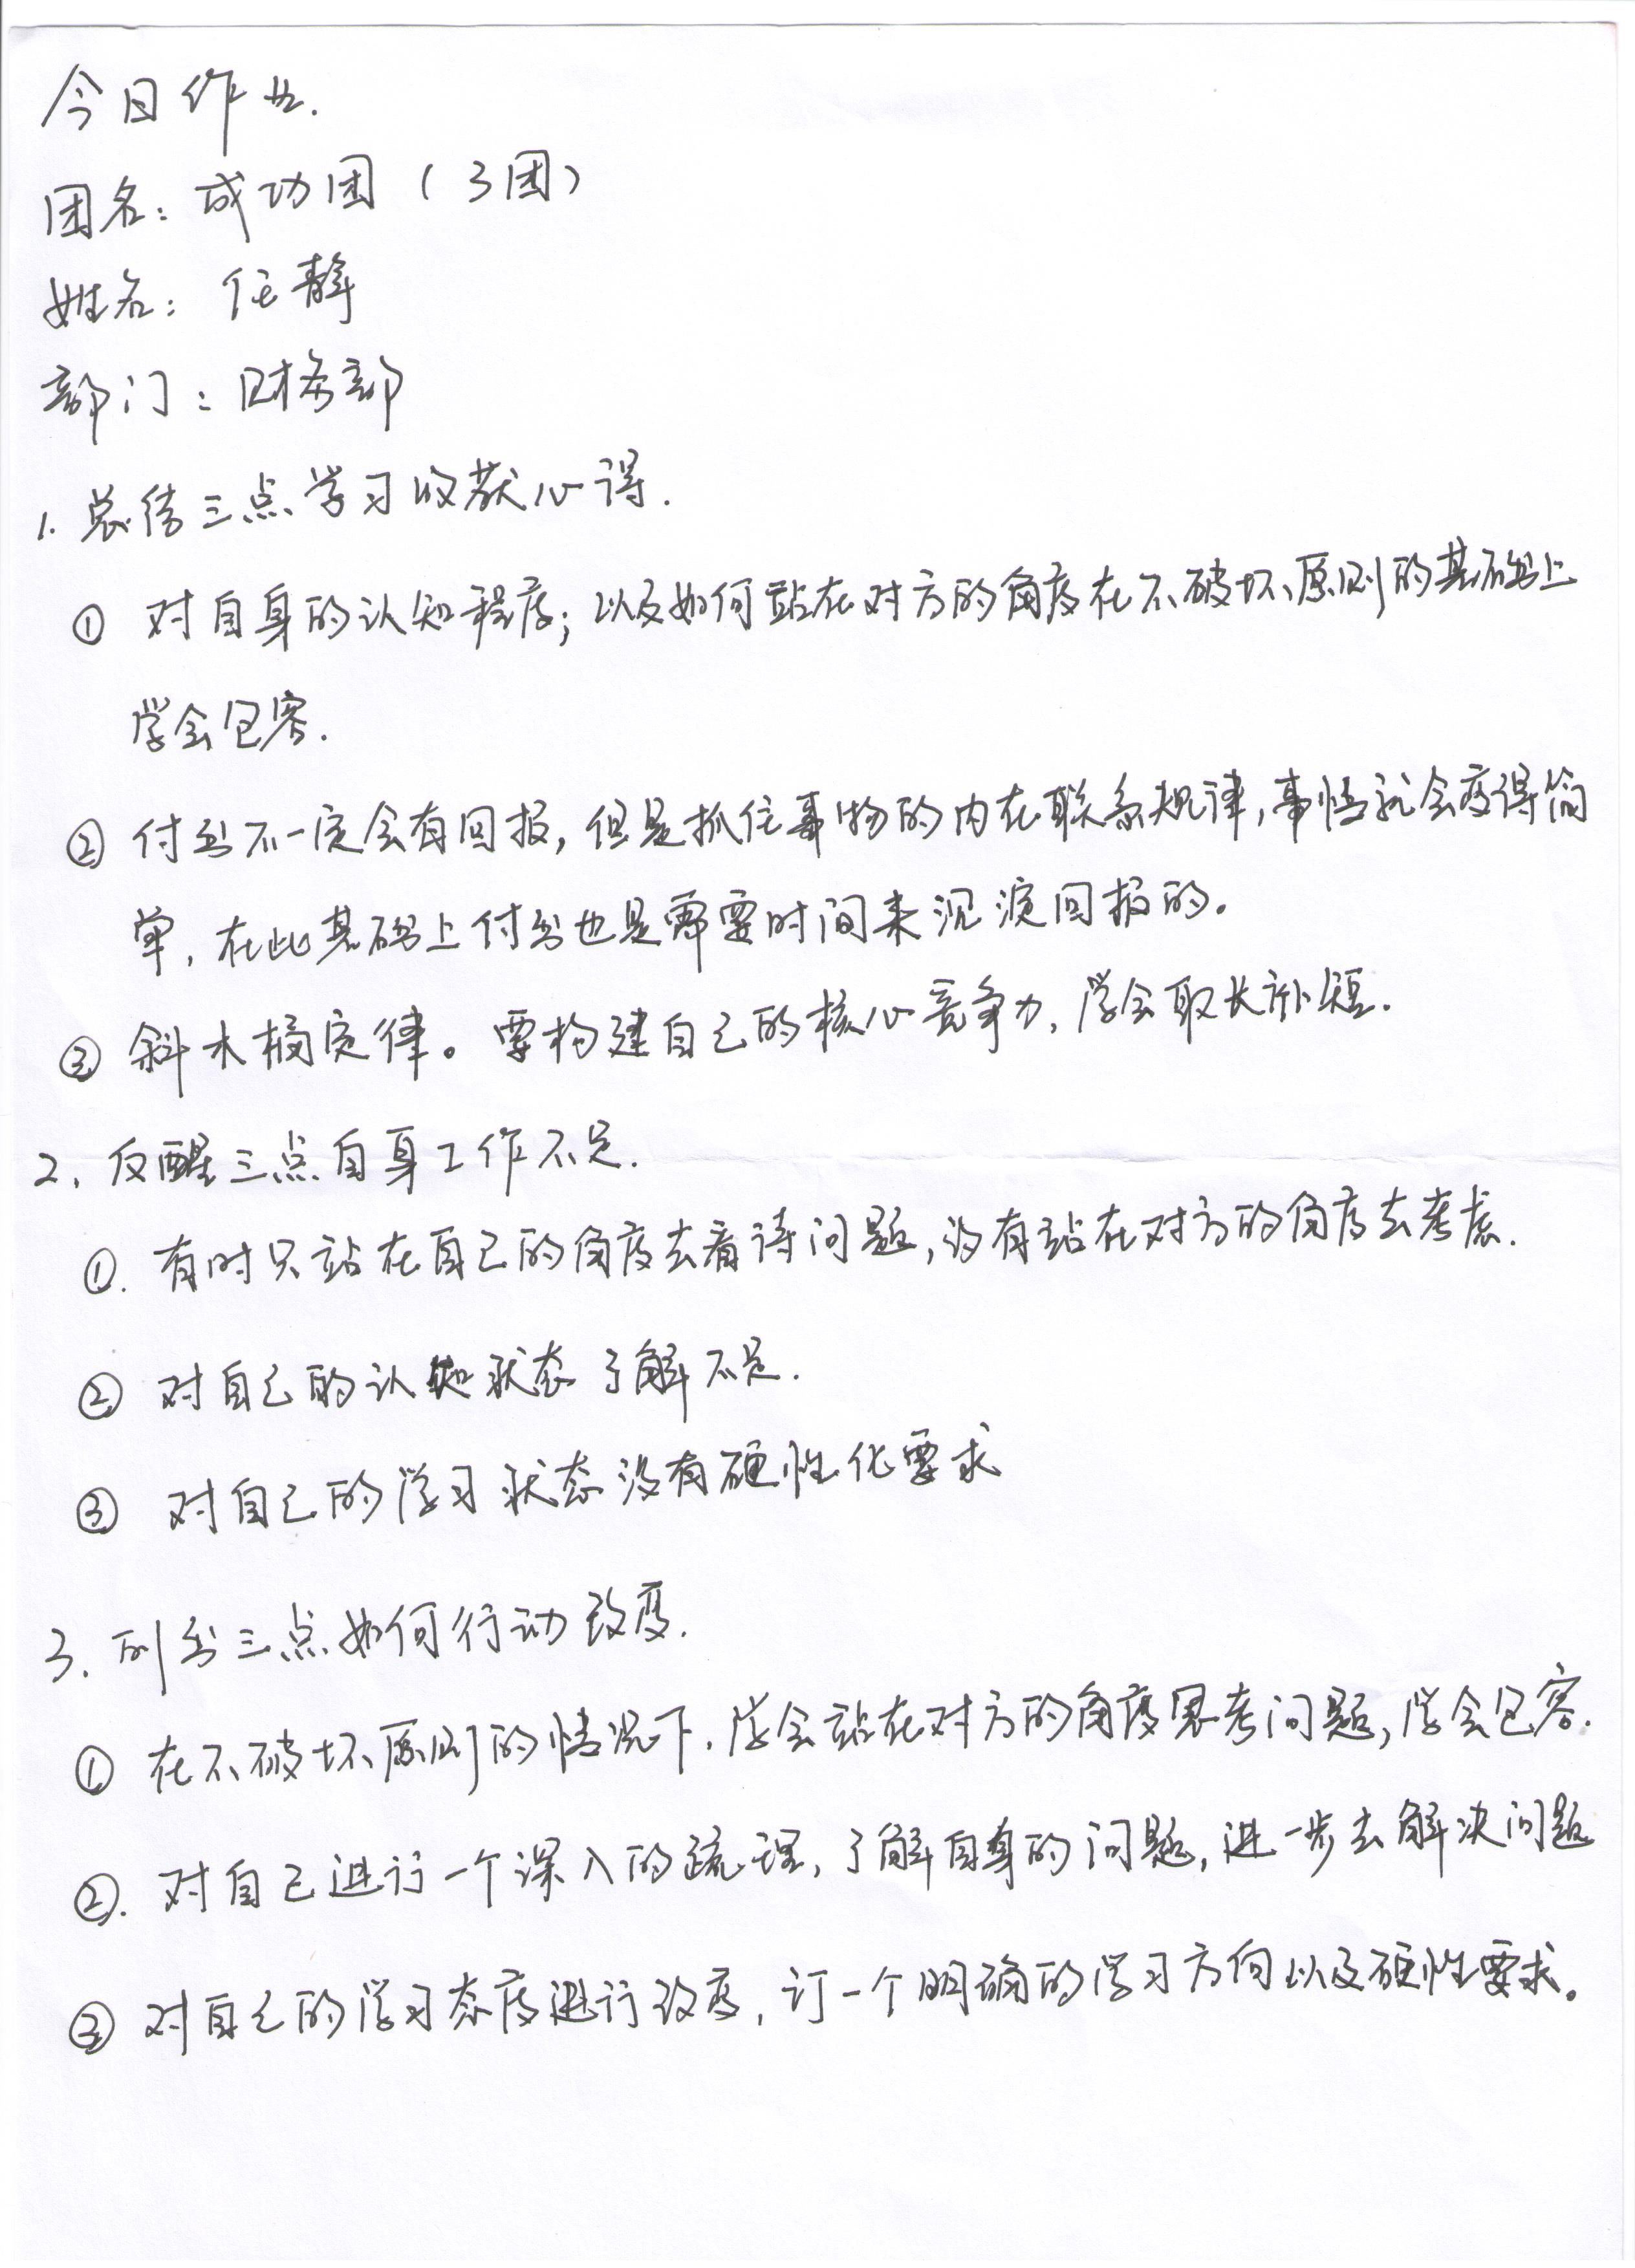 今日作业.
团名：成功团（3团）
姓名：任静
部门：财务部
1. 总结三点学习收获心得.
① 对自身的认知程度；以及如何站在对方的角度在不破坏原则的基础上
学会包容.
② 付出不一定会有回报，但是抓住事物的内在联系规律，事情就会变得简
单，在此基础上付出也是需要时间来沉淀回报的。
③ 斜木桶定律。要构建自己的核心竞争力，学会取长补短.
2. 反醒三点自身工作不足.
①. 有时只站在自己的角度去看待问题，没有站在对方的角度去考虑.
② 对自己的认知状态了解不足.
③ 对自己的学习状态没有硬性化要求
3. 列出三点如何行动改变.
① 在不破坏原则的情况下，学会站在对方的角度思考问题，学会包容.
②. 对自己进行一个深入的疏理，了解自身的问题，进一步去解决问题
③ 对自己的学习态度进行改变，订一个明确的学习方向以及硬性要求。